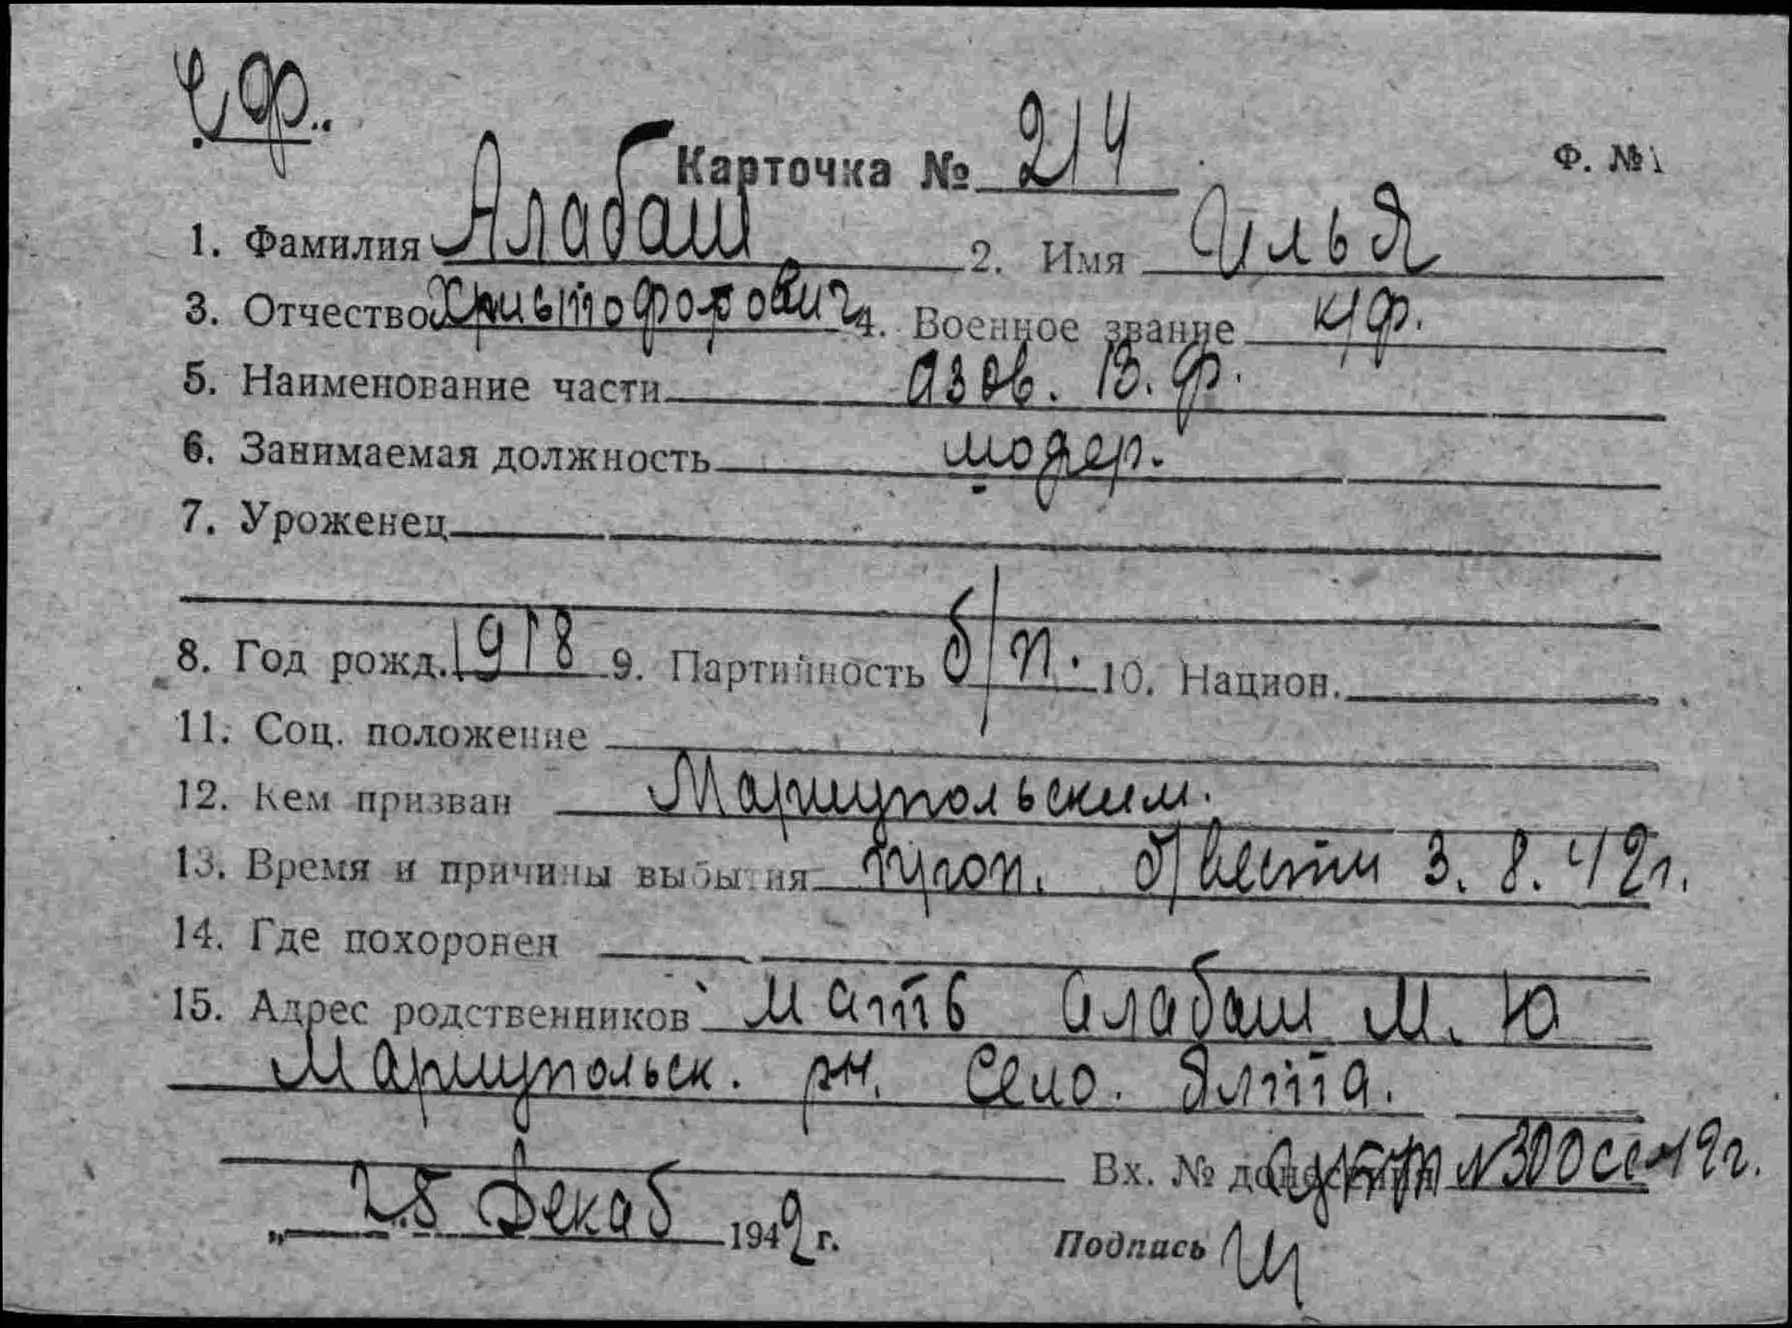 Карточка № 214
Ф. №1
1. Фамилия Алабаш 2. Имя Илья
3. Отчество Христофорович 4. Военное звание к/ф.
5. Наименование части Азов. В. Ф.
6. Занимаемая должность шофер.
7. Уроженец
8. Год рожд. 1918 9. Партийность б/п. 10. Национ.
11. Соц. положение
12. Кем призван Мариупольским.
13. Время и причины выбытия б/вести 3. 8. 42г.
14. Где похоронен
15. Адрес родственников мать Алабаш М. Ю
Мариупольск. рн. Село. Ялта.
Вх. № 300сс 42г.
„ 25 Декаб 1942 г.
Подпись